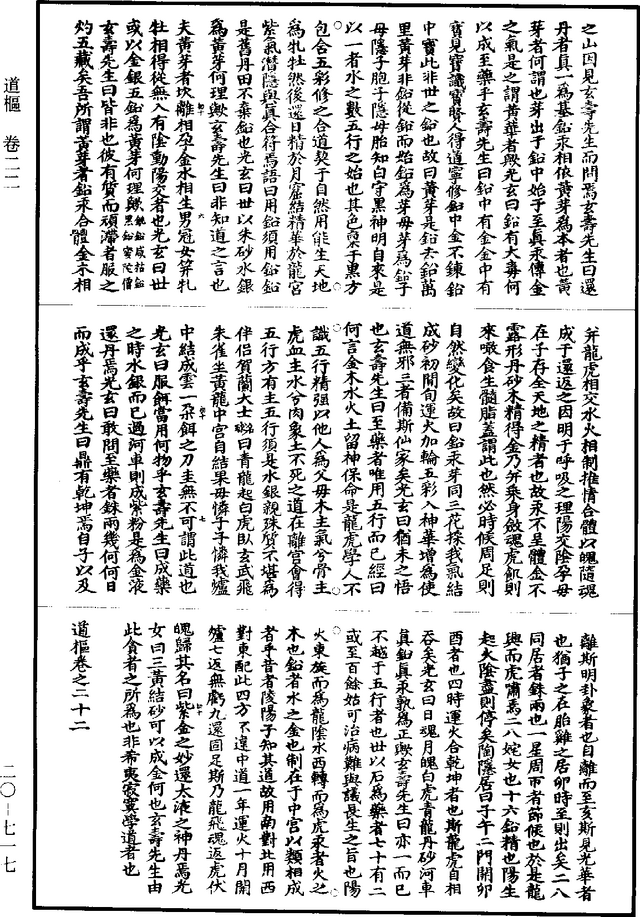 之山因見玄壽先生而問焉玄壽先生曰還
丹者真一為基鉛汞相依黃芽為本者也黃
芽者何謂也芽出于鉛中始于至真汞傳金
之氣是之謂黃華者歟光玄曰鉛有大毒何
以成至藥乎玄壽先生曰鉛中有金金中有
寶見寶識寶賢人得道寧修鉛中金不鍊鉛
中寶此非世之鉛也故曰黃芽是鉛去鉛萬
里黃芽非鉛從鉛而始鉛為芽母芽為鉛子
母隱子胞子隱母胎知白守黑神明自來是
以一者水之數五行之始也其色稟于黑方
包合五彩修之合道契于自然用能生天地
為牝牡然後還日精於月窟結精華於龍宮
紫氣潛隱與真合符焉語曰用鉛須用鉛鉛
是舊丹田不棄鉛也光玄曰世以朱砂水銀
為黃芽何理歟玄壽先生曰非知道之言也
夫黃芽者坎離相孕金水相生男冠女笄牝
牡相得從無入有陰動陽交者也光玄曰世
或以金銀五鉛為黃芽何理歟
玄壽先生曰皆非也彼有質而頑滯者服之
灼五藏矣吾所謂黃芽者鉛汞合體金木相
并龍虎相交水火相制推情合體以魄隨魂
成于還返之因明于呼吸之理陽交陰孕母
在子存全天地之精者也故汞不呈體金不
露形丹砂木精得金乃并乘身斂魂虎飢則
來噉食生髓脂蓋謂此也然必時候周足則
自然變化矣故曰鉛汞芽同三花採我氣結
成砂初開旬運火加輪五彩入神華增為使
道無邪三者備斯仙家矣光玄曰猶未之悟
也玄壽先生曰至藥者唯用五行而已經曰
何言金木水火土留神保命是龍虎學人不
識五行精強以他人為父母木主氣兮骨主
虎血主水兮肉象土不死之道在離宮會得
五行方有主五行須是水銀親珠質不堪為
伴侶賀蘭大士曰青龍起白虎臥玄武飛
朱雀坐黃龍中宮自結果母憐子子憐我爐
中結成雲一朵餌之刀圭無不可謂此道也
光玄曰服餌當用何物乎玄壽先生曰成藥
之時水銀而已過河車則成紫粉是為金液
還丹焉光玄曰敢問至藥者銖兩幾何何日
而成乎玄壽先生曰鼎有乾坤焉自子以及
離斯明卦彖者也自離而至亥斯見光華者
也猶子之在胎雞之居卵時至則出矣二八
同居者銖兩也一星周帀者節候也於是龍
興而虎嘯焉二八姹女也十六鉛精也陽生
起火陰盡則停矣陶隱居曰子午二門開卯
酉者也四時運火合乾坤者也斯龍虎自相
吞矣光玄曰日魂月魄白虎青龍丹砂河車
真鉛真汞孰為正歟玄壽先生曰亦一而已
不越于五行者也世以石為藥者七十有二
或至百餘姑可治病難與議長生之旨也陽
火東旋而為龍陰水西轉而為虎汞者火之
木也鉛者水之金也制在于中宮以類相成
者乎昔者陵陽子知其道故用南對北用西
對東配此四方不違中道一年運火十月開
爐七返無虧九還固足斯乃龍飛魂返虎伏
魄歸其名曰紫金之妙還太液之神丹焉光
女曰三黃結砂可以成金何也玄壽先生由
此貪者之所為也非希夷寂寞學道者也
道樞卷之二十二
道樞 卷二二
二〇–七一七